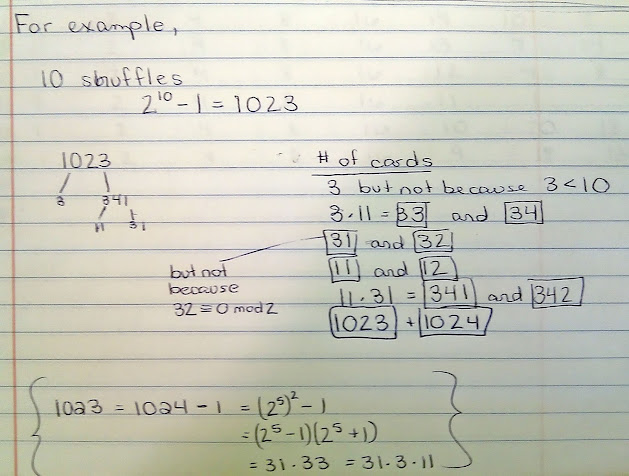 For example,
10 shuffles
2¹⁰ - 1 = 1023
1023
3 341
11 31
# of cards
3 but not because 3 < 10
3·11 = 33 and 34
31 and 32
11 and 12
11·31 = 341 and 342
1023 + 1024
but not
because
32 ≡ 0 mod 2
1023 = 1024 - 1 = (2⁵)² - 1
= (2⁵ - 1)(2⁵ + 1)
= 31·33 = 31·3·11